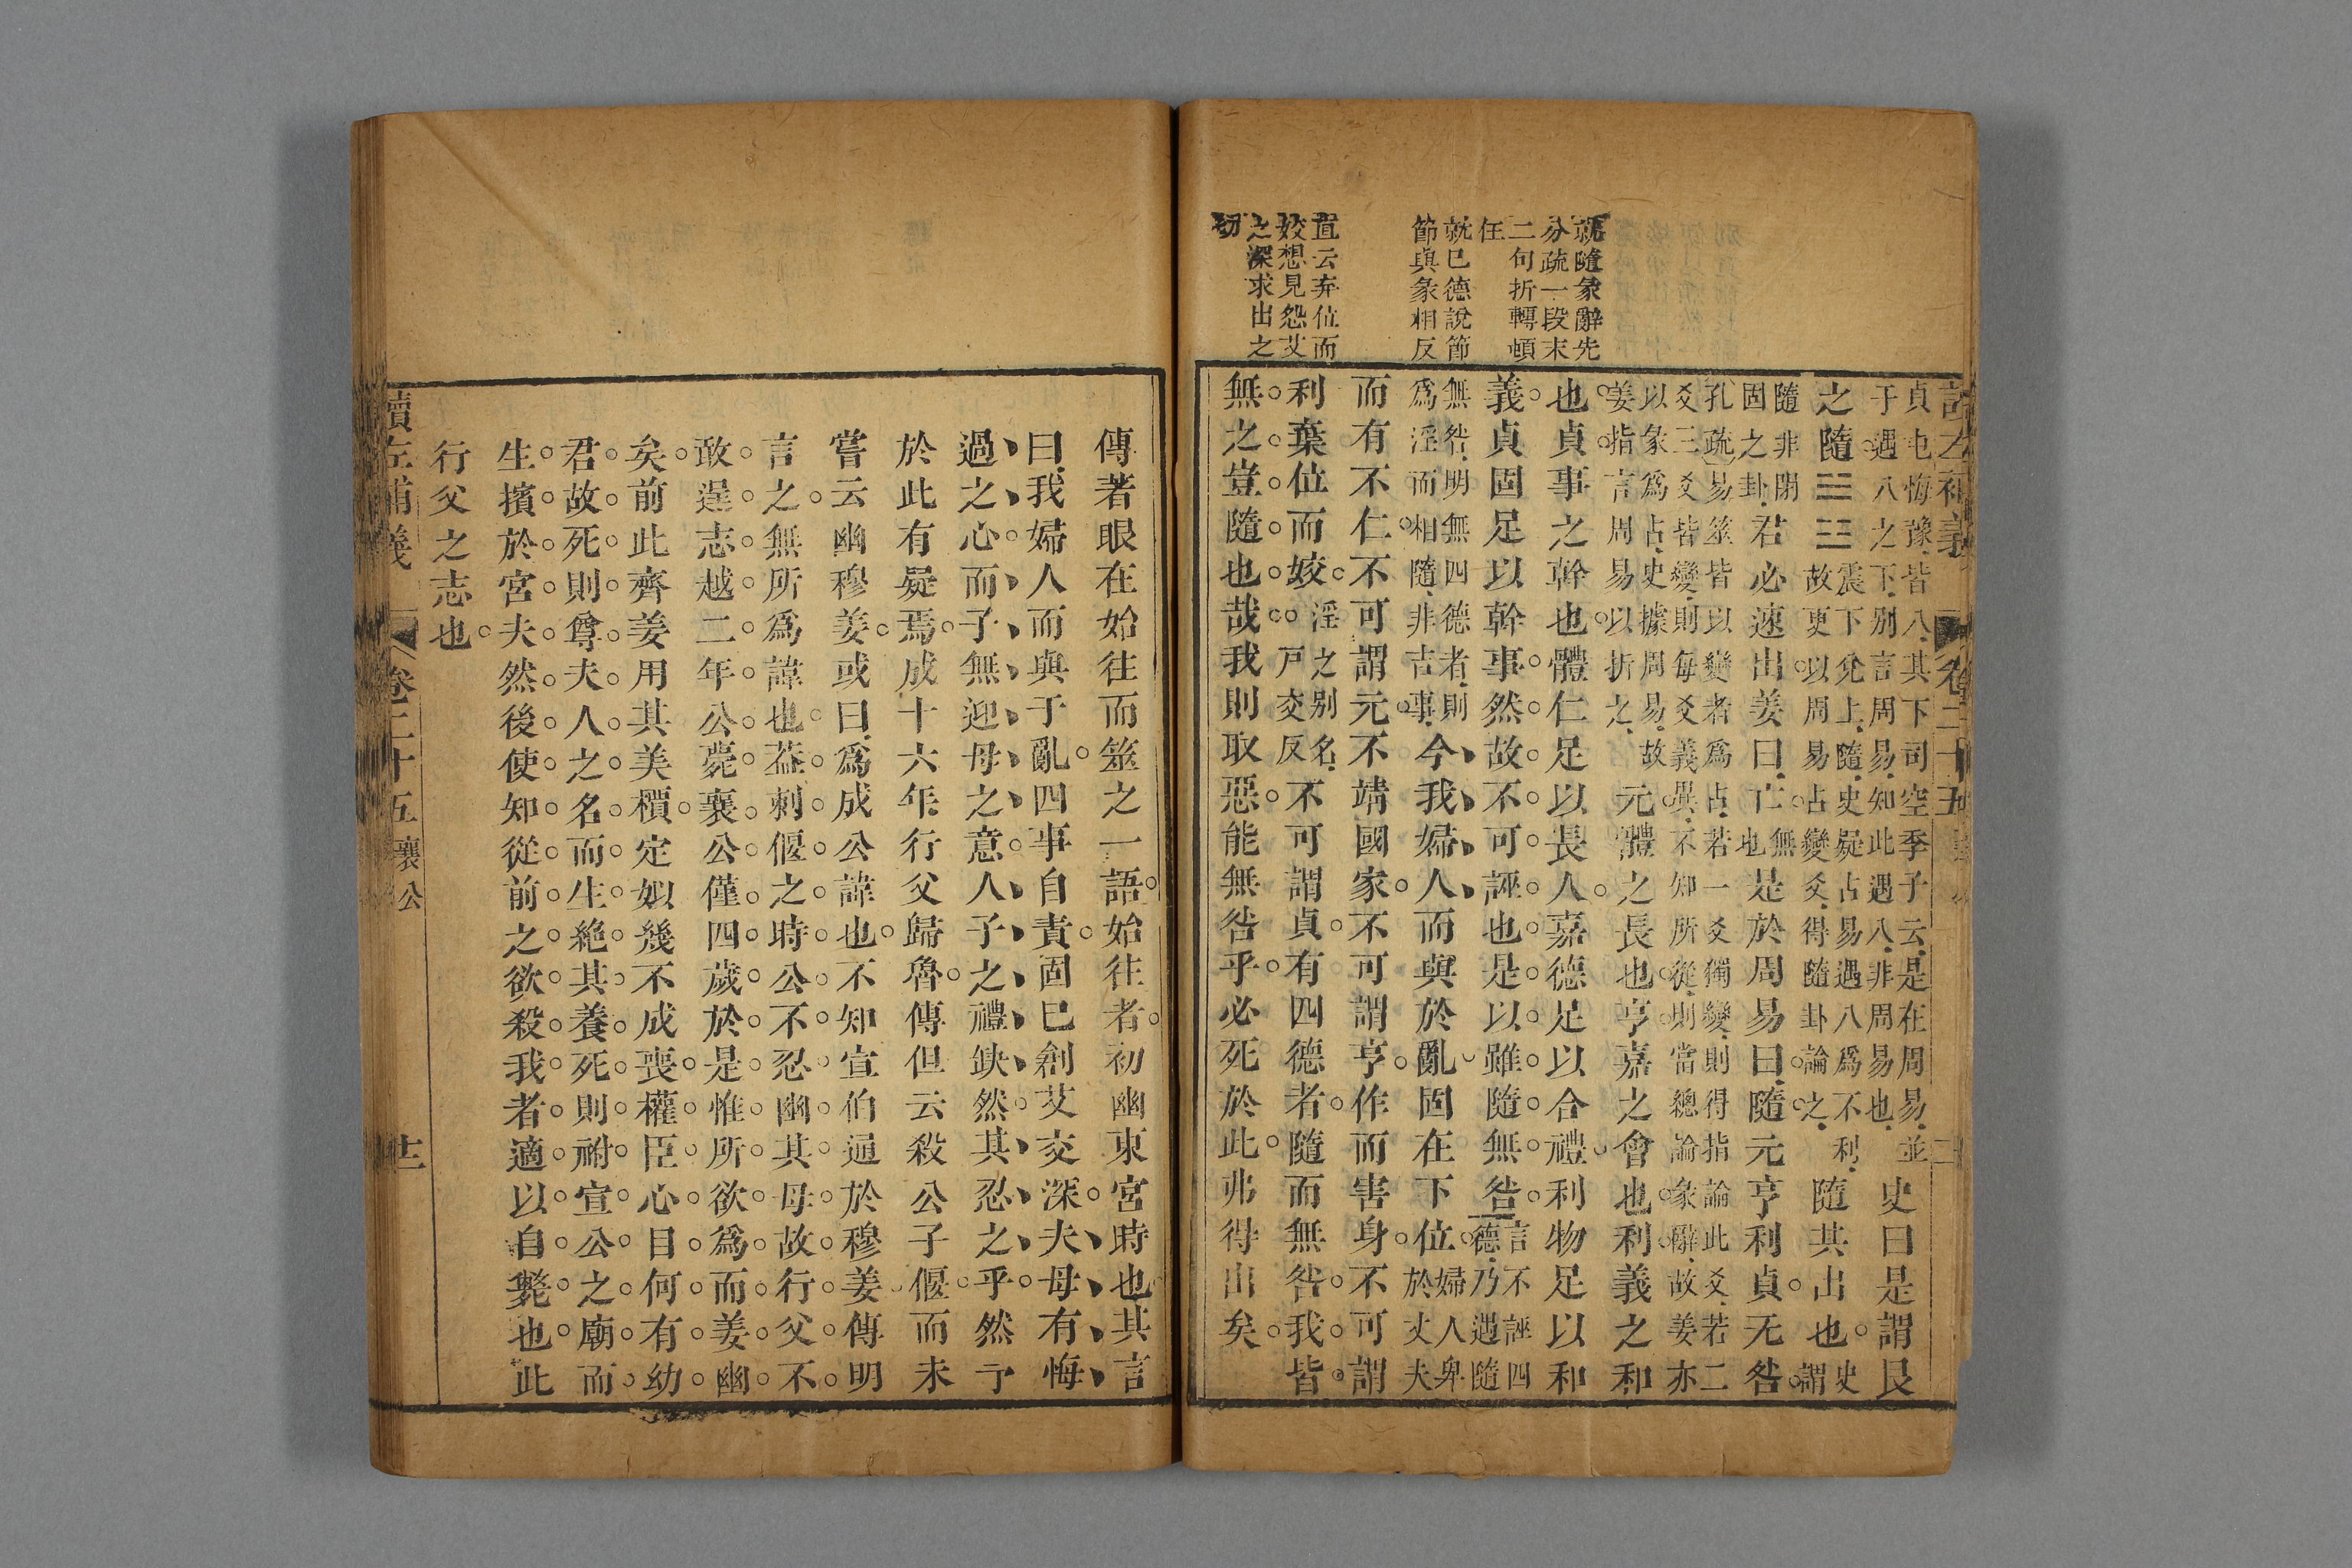 就隨象辭先
分疏一段末
二句折轉頓
任
就已德說節
節與象相反
直云弃位而
姣想見怨艾
之深求出之
切
貞也悔豫皆八其下司空季子云是在周易並
于遇八之下別言周易知此遇八非周易也
史曰是謂艮
之隨☱☳
震下兌上隨史疑占易遇八爲不利
故更以周易占變爻得隨卦論之
隨其出也
史
謂
隨非閉
固之卦
君必速出姜曰亡
無
也
是於周易曰隨元亨利貞无咎
孔疏易筮皆以變者爲占若一爻獨變則得指論此爻若二
爻三爻皆變則每爻義異不知所從則當總論象辭故姜亦
以象爲占史據周易故
姜指言周易以折之
元體之長也亨嘉之會也利義之和
也貞事之幹也體仁足以長人嘉德足以合禮利物足以和
義貞固足以幹事然故不可誣也是以雖隨無咎
言不誣四
德乃遇隨
無咎明無四德者則
爲淫而相隨非吉事
今我婦人而與於亂固在下位
婦人卑
於丈夫
而有不仁不可謂元不靖國家不可謂亨作而害身不可謂
利棄位而姣
淫之别名
戸交反
不可謂貞有四德者隨而無咎我皆
無之豈隨也哉我則取惡能無咎乎必死於此弗得出矣
傳著眼在始往而筮之一語始往者初幽東宮時也其言
曰我婦人而與于亂四事自責固已創艾交深夫母有悔
過之心而子無迎母之意人子之禮缺然其忍之乎然予
於此有疑焉成十六年行父歸魯傳但云殺公子偃而未
嘗云幽穆姜或曰爲成公諱也不知宣伯通於穆姜傳明
言之無所爲諱也葢刺偃之時公不忍幽其母故行父不
敢逞志越二年公薨襄公僅四歲於是惟所欲爲而姜幽
矣前此齊姜用其美檟定姒幾不成喪權臣心目何有幼
君故死則尊夫人之名而生絶其養死則祔宣公之廟而
生擯於宮夫然後使知從前之欲殺我者適以自斃也此
行父之志也
讀左補義
卷二十五
襄公